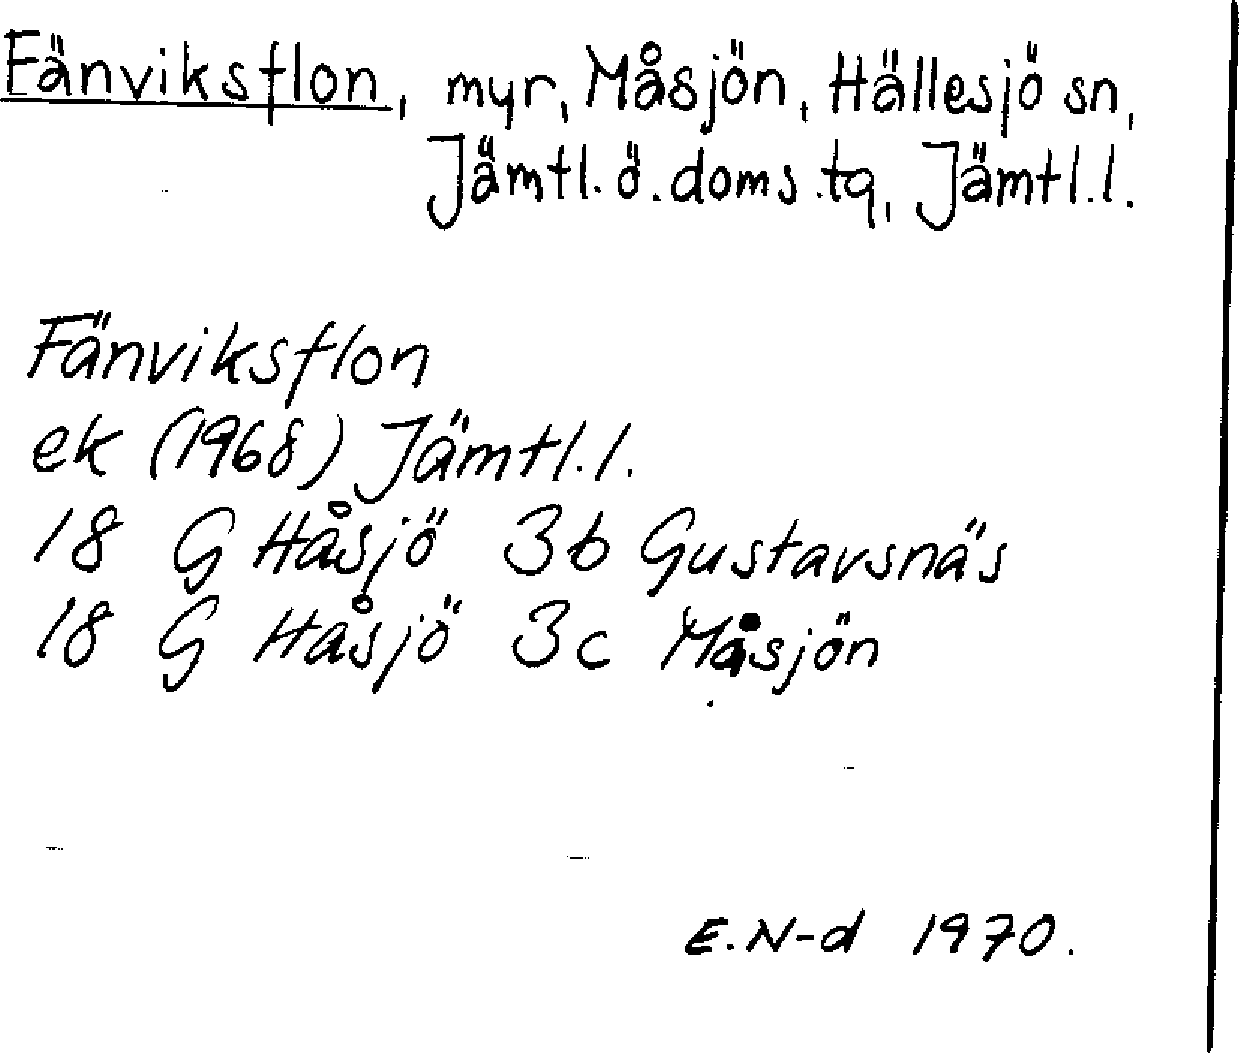 Fänviksflon, myr, Måsjön, Hällesjö sn,
Jämtl. ö. doms. tg, Jämtl. l.
Fänviksflon
ek (1968) Jämtl. l.
18 G Håsjö 3b Gustavsnäs
18 G Håsjö 3c Måsjön
E. N-d 1970.